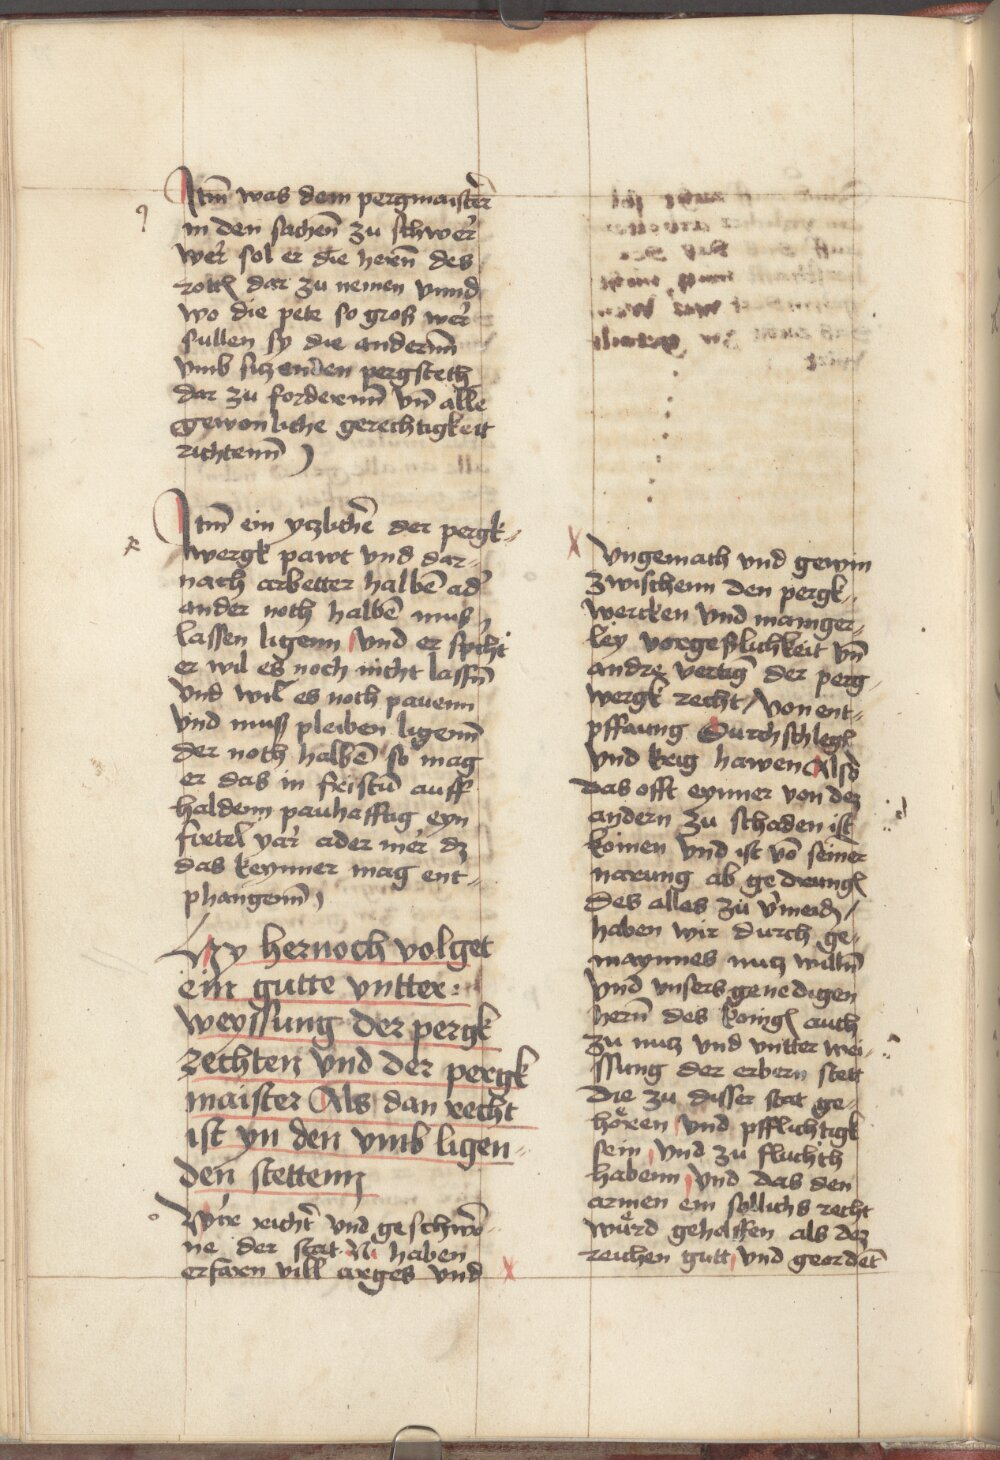 Itm̄ was dem pergmaister̄
in den sachen̄ zu schwer̛
wer̛ sol er die heren̄ des
rottz dar zu nemen vnnd
wo die pete so groß wer̛
sullen sy die anderm̄
vmb siczenden pergsteth
dar zu fordernn̄ vn̄ alle
gewonliche gerechtigkeit
richtenn̄
Itm̄ ein yczlicher̄ der pergk-
wergk pawt vnd dar-
nach arbetter halbē ad̛
ander noth halbē mus
lassen ligenn vnd er spicht
er wil es noch nicht lassn̄
vnd wil es noch pauenn
vnd muß pleiben ligenn̄
der noth halbē so mag
er das in fristū auff
haldenn pauhafftig eyn
firtel Jar̛ ader mer̛ dz
das keynner mag ent-
phangenn̄
Hy hernoch volget
ein gutte vntter:
weyssung der pergk
rechten vnd der pergk
maister Als dan recht
ist yn den vmb ligen-
den stettenn
Wir richt̄ vnd geschwor̄-
ne der stat N haben
erfarn vill arges vnd
vngemach vnd gewin
zwischenn den pergk-
wercken vnd mainger-
ley vorgeßlichkeit vn̄
andre vertig der perg
wergk recht / von ent-
pffaung Durchschlegl
vnd krig hawen Alsd
das offt eynner von dez
andern zu schaden ist
komen vnd ist vō seiner
narung ab gedrungē
des alles zu v̛meidē /
haben wir durch ge-
maynnes nucz willn̄
vnd vnsers genedigen
hern̄ des konigs auch
zu nucz vnd vntter wei-
ssung der erbern stett
die zu disser stat ge-
horen vnd pfflichtigk
sein vnd zu flucht
habenn vnd das den
armen ein sollichs recht
wurd geholffen als dez
reichen gutt vnd geordet̄